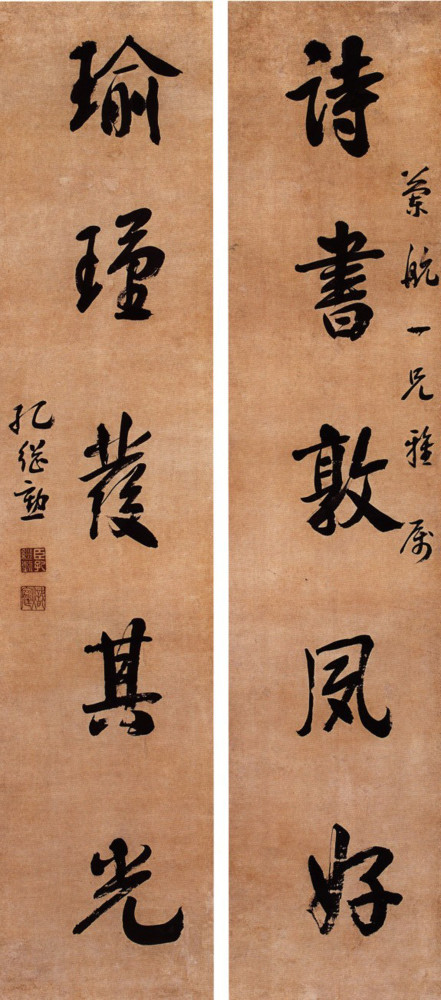 蘭航一兄雅属
詩書敦夙好
瑜瑾發其光
孔繼勳